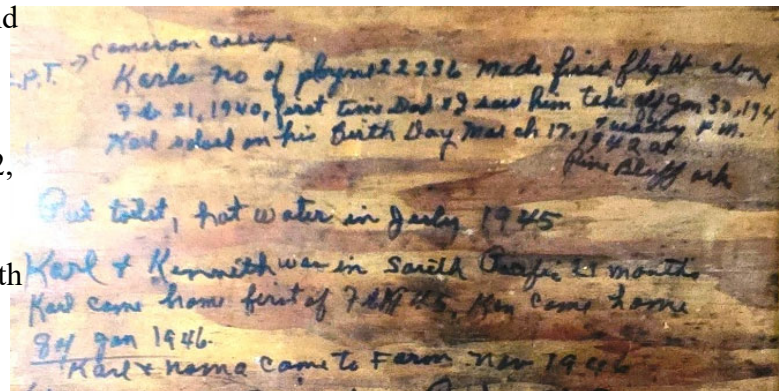 nd
C.P.T. → Cameron college
Karls no of plyne 22236 made first flight alone
Feb 21, 1940, first time Dad & I saw him take off Jan 30, 194
Karl soloed on his Birth Day March 17, Tuesday P.M.
1942 at
Pine Bluff ark
2,
Put toilet, hot water in July 1945
th
Karl & Kenneth was in South Pacific months
Karl came home first of Feb 45, Ken came home
8 of Jan 1946.
Karl & Noma came to Farm Nov 1946